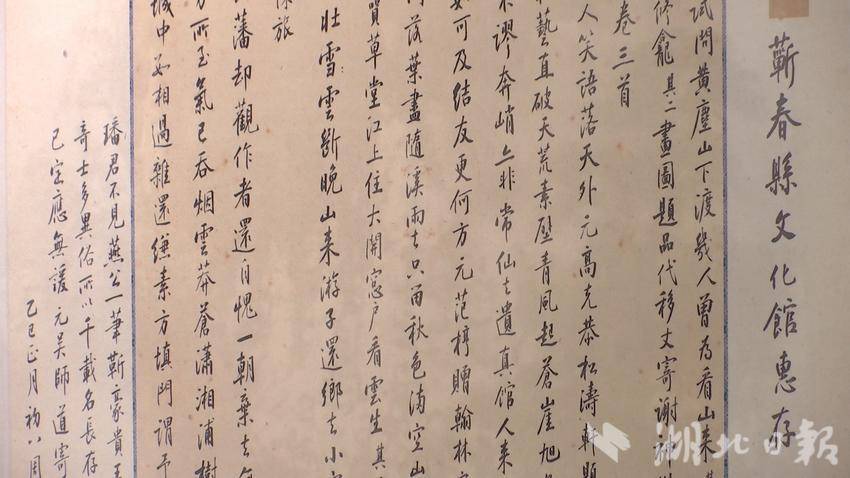 蕲春縣文化館惠存
試問黄塵山下渡幾人曾為看山来
修龕其二畫圖題品代移文寄謝神
卷三首
人笑語落天外元高克恭松濤軒題
藝直破天荒素壁青風起蒼崖旭
不謬奔峭亦非常仙去遺真館人来
如可及結友更何方元范梈贈翰林
落葉盡隨溪雨去只留秋色満空山
買草堂江上住大開窓戶看雲生其
壯雪雲斷晚山来游子還鄉去小
旅
藩却觀作者還自愧一朝棄去
方所至氣已吞烟雲莽蒼瀟湘浦樹
城中如相過雜還縑素方填門謂予
璠君不見燕公一筆靳豪貴王
奇士多異俗所以千載名長存
已定應無諼元吴師道寄
乙巳正月初八周
湖北日報